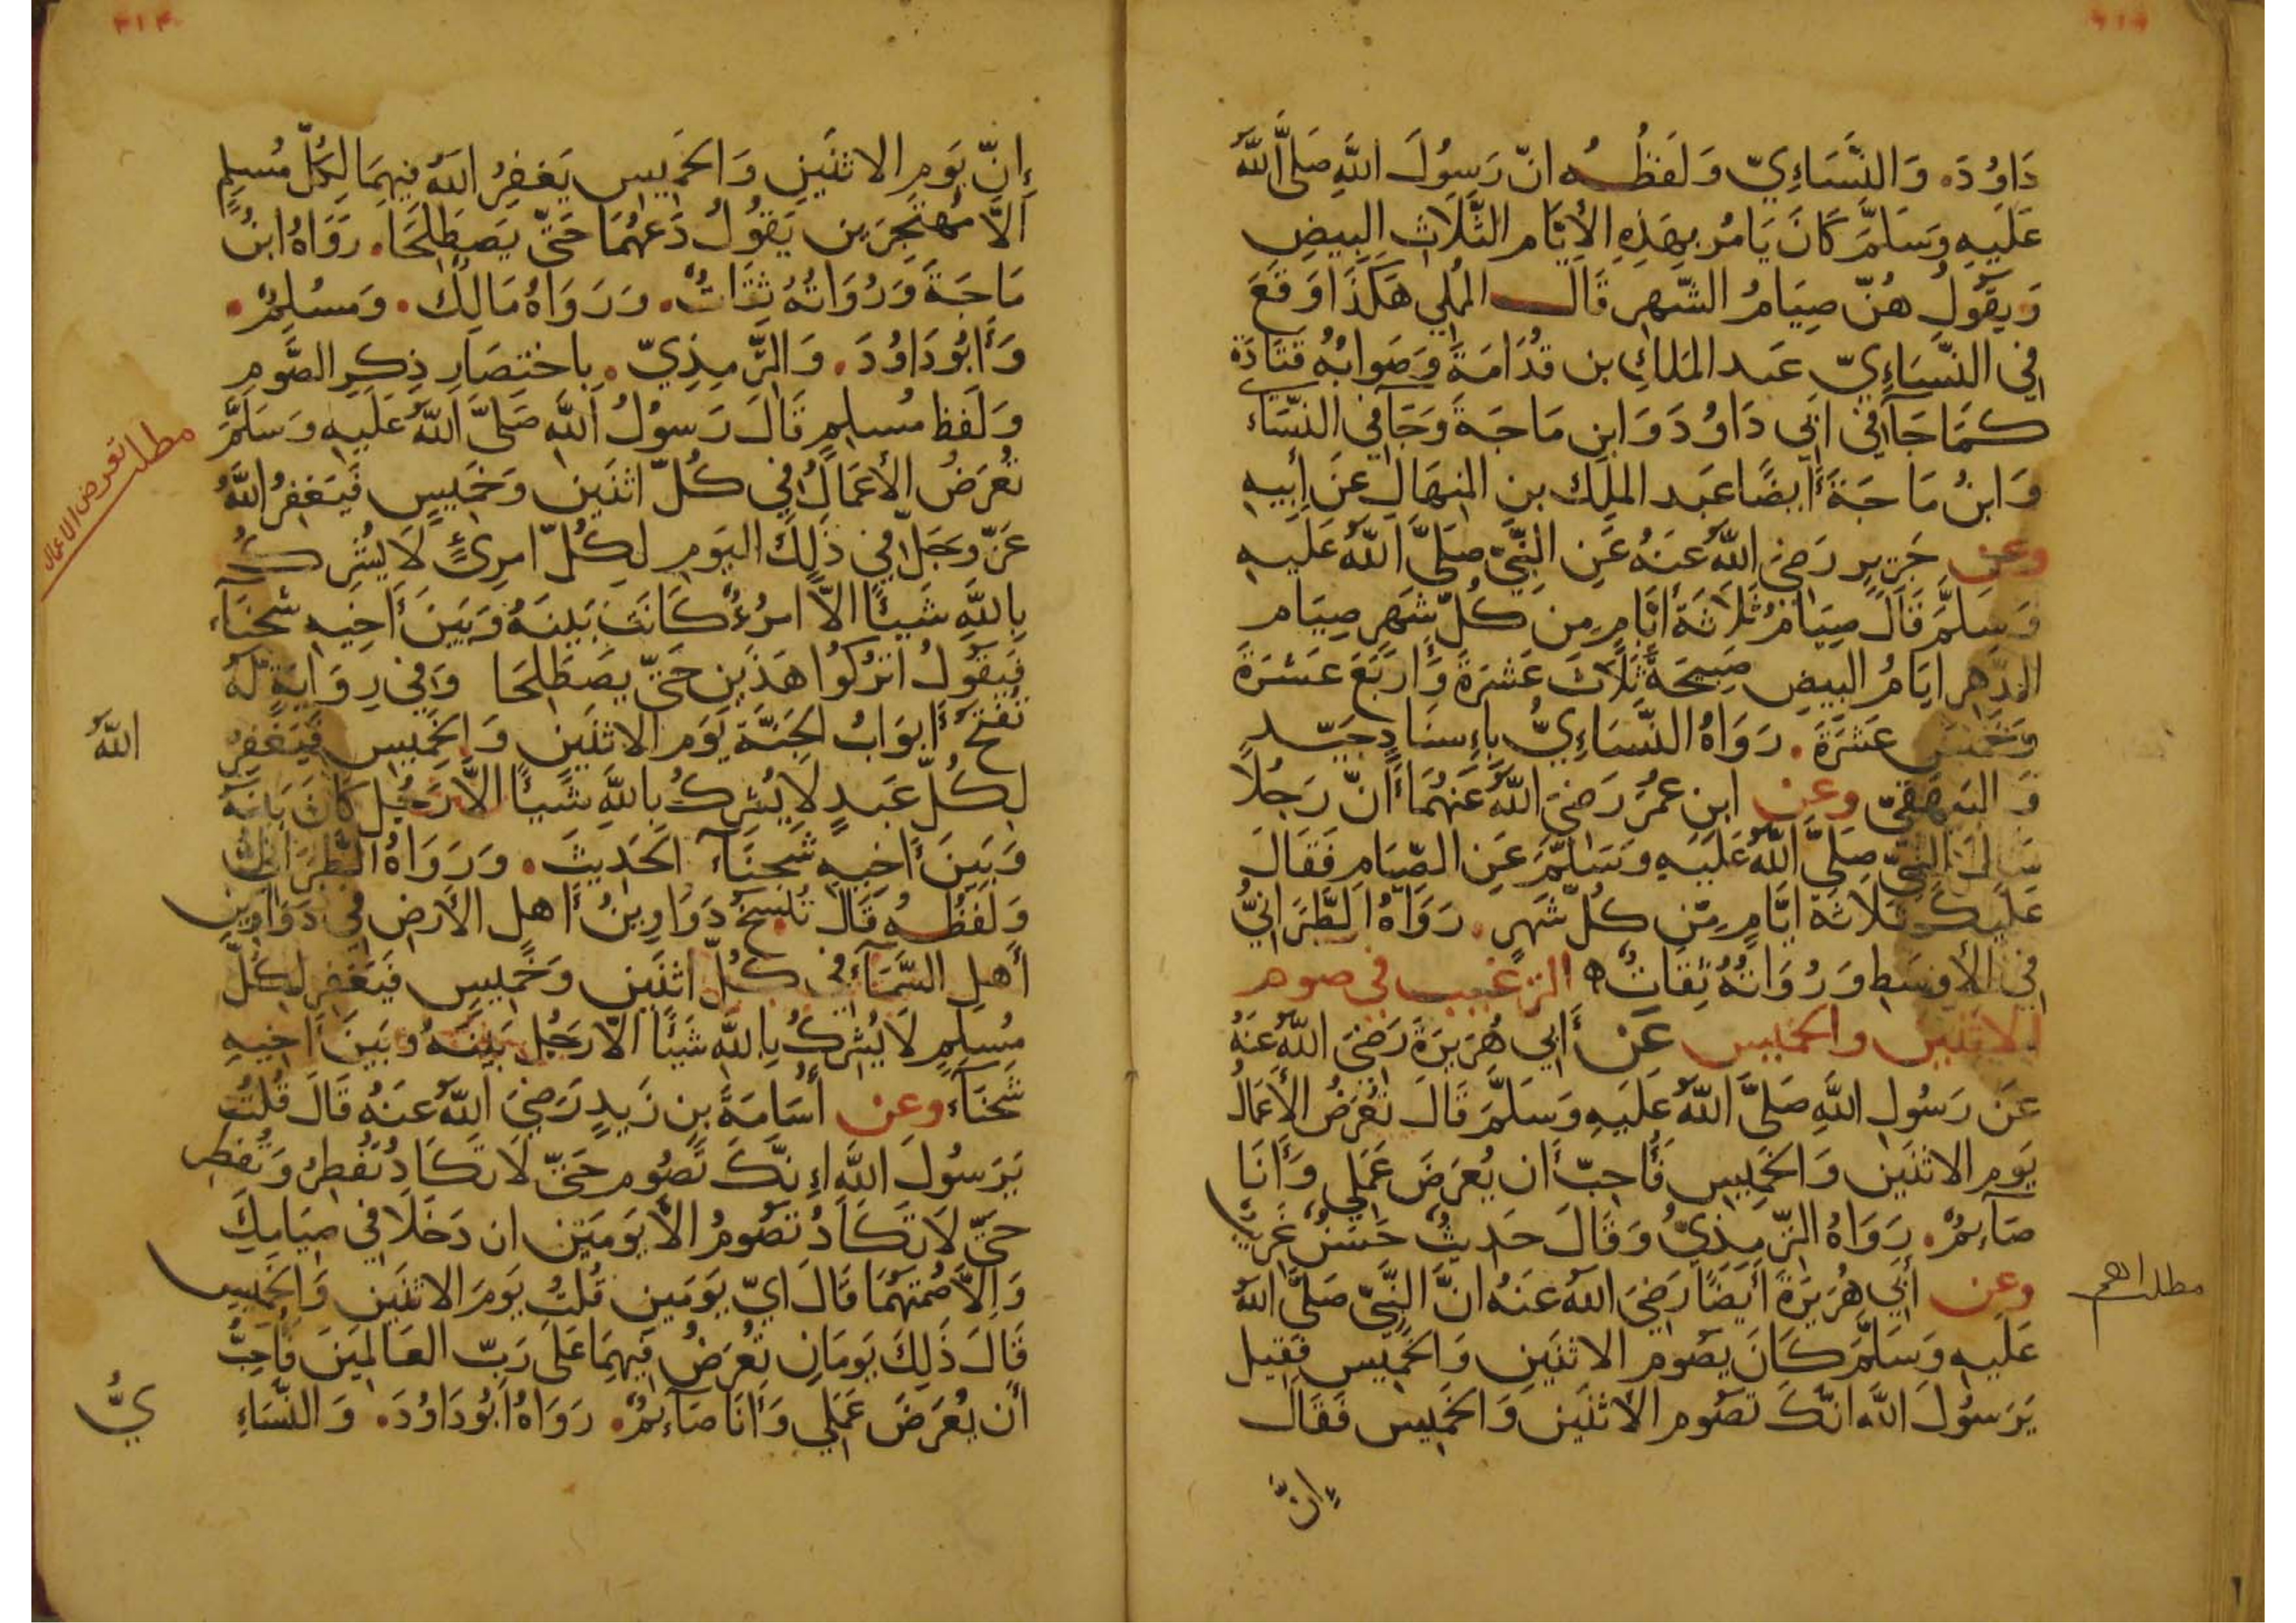 دَاوُدَ. وَالنَّسَاءِيّ وَلَفظُه انّ رَسُولَ اللَّهِ صَلَّى اللَّهُ
عَلَيهِ وَسَلَّمَ كَانَ يَامُر بِهَذِهِ الأيَّام الثَّلَاثِ البِيضِ
وَيَقُولُ هُنّ صِيَامُ الشَّهرِ قَال المُملي هَكَذَا وَقَعَ
في النّسَاءِيّ عَبد المَلكِ بن قُدَامَةَ وَصَوابُهُ قَتَادَة
كَمَا جَآ في ابي دَاوُدَ وَابنِ مَاجَةَ وَجَآ في النّسَاءي
وَابنُ مَاجَةَ أَيضًا عَبد المَلِك بنِ المِنهَالِ عَن أَبِيهِ
وعن جَرِيرٍ رَضيَ اللَّهُ عَنهُ عَنِ النَّبيّ صَلَّى اللَّهُ عَلَيهِ
وَسَلَّمَ قَالَ صِيَامُ ثَلَاثَة أيَّامٍ مِن كُلّ شَهرٍ صِيَام
الدّهرِ ايَامُ البِيضِ صَبِيحَةَ ثَلَاثَ عَشرَةَ وَأَربَعَ عَشرَةَ
وَخَمسَ عَشرَةَ. رَوَاهُ النّسَاءِيُّ بإِسنَادٍ جَيّد
وَ البَيهَقيّ وعن ابنِ عُمَرَ رَضيَ اللَّهُ عَنهُمَا أنّ رَجُلًا
سَالَ النَّبيّ صَلَّى اللَّهُ عَلَيهِ وَسَلَّمَ عَنِ الصّيَامِ فَقَالَ
عَلَيكَ بثَلَاثَة ايَّامٍ مّن كُلّ شَهرٍ. رَوَاهُ الطَّبَرَانيُّ
في الأَوسَطِ وَرُوَاتُهُ ثِقَاتٌ ه الترغيب في صوم
الاثنين والخميس عَن أَبي هُرَيرَةَ رَضيَ اللَّهُ عَنهُ
عَن رَسُولِ اللَّهِ صَلَّى اللَّهُ عَلَيهِ وَسَلَّمَ قَالَ تُعرَضُ الأَعمَالُ
يَومِ الاثنَينِ وَالخَمِيسِ فَأُحِبّ أَن يُعرَضَ عَمَلي وَأَنَا
صَآئِمٌ. رَوَاهُ التّرمِذِيُّ وَقَالَ حَدِيثٌ حَسَنٌ غَرِيبٌ
وعن أَبي هُرَيرَةَ أَيضًا رَضيَ اللَّهُ عَنهُ انَّ النَّبيّ صَلَّى اللَّهُ
مطلب اهم
عَلَيهِ وَسَلَّمَ كَانَ يَصُوم الاثنَينِ وَالخَمِيس فَقِيل
يَرَسُولَ اللَّهِ انّكَ تَصُوم الاثنَينِ وَالخَمِيس فَقَالَ
إنَّ
إِنّ يَوم الاثنَينِ وَالخَمِيس يَغفِرُ اللَهُ فِيهِمَا لِكُلّ مُسلِمٍ
الَّا مُهتَجِرَين يَقُولُ دَعهُمَا حَتّى يَصطَلِحَا. رَوَاهُ ابنُ
مَاجَةَ وَرُوَاتُهُ ثِقَاتٌ. وَرَوَاهُ مَالِكٌ. وَمسُلِمٌ.
وَأَبُو دَاوُدَ. وَالتّرمِذِيّ. بِاختِصَارِ ذِكرِ الصَّومِ
وَلَفظ مُسلِمٍ قَالَ رَسُولُ اللَّهِ صَلَّى اللَّهُ عَلَيهِ وَسَلَّمَ
تُعرَضُ الأَعمَالُ في كُلّ اثنَينِ وَخَمِيسٍ فَيَغفِرُ اللَّهُ
مطلب تعرض الاعمال
عَزّ وَجَلّ في ذَلِكَ اليَومِ لِكُلّ امرِئٍ لَا يُشرِكُ
بِاللَّهِ شَيئًا الَّا امرُءٌ كَانَت بَينَهُ وَبَينَ أَخِيهِ شَحنَآء
فَيَقُولُ اترُكُوا هَذَينِ حَتّى يَصطَلِحَا وَفي رِوَايَةٍ لَّهُ
تُفتَحُ أَبوَابُ الجَنَّةِ يَوم الاثنَينِ وَالخَمِيس فَيَغفِرُ
اللهُ
لِكُلّ عَبدٍ لَا يُشرِكُ بِاللَّهِ شَيئًا الَّا رَجُل كَانَ بَينَهُ
وَبَينَ أَخِيهِ شَحنَآء الحَدِيثَ. وَرَوَاهُ الطَّبَرَانيّ
وَلَفظُه قَالَ تُنسَخُ دَوَاوِينُ أَهلِ الأَرضِ في دَوَاوِين
أَهلِ السَّمَآءِ في كُلّ اثنَينِ وَخَمِيسٍ فَيَغفِر لِكُلّ
مُسلِمٍ لَا يُشرِكُ بِاللَّهِ شَيئًا الَّا رَجُل بَينَهُ وَبَينَ اخِيهِ
شَحنَآء وعن أُسَامَةَ بنِ زَيدٍ رَضيَ اللَّهُ عَنهُ قَالَ قُلتُ
يَرَسُولَ اللَّهِ إِنّكَ تَصُوم حَتّى لَا تَكَادُ تُفطِرُ وَتُفطِر
حَتّى لَا تَكَادُ تَصُومُ الَّا يَومَين ان دَخَلَا في صِيَامِكَ
وَالَّا صُمتَهُمَا قَالَ ايّ يَومَينِ قُلتُ يَومَ الاثنَينِ وَالخَمِيس
قَالَ ذَلِكَ يَومَانِ تُعرَضُ فِيهِمَا عَلَى رَبّ العَالمِينَ فَأُحِبُّ
أَن يُعرَضَ عَمَلي وَأَنَا صَآئِمٌ. رَوَاهُ أَبُو دَاوُدَ. وَالنّسَاءِ
يُّ